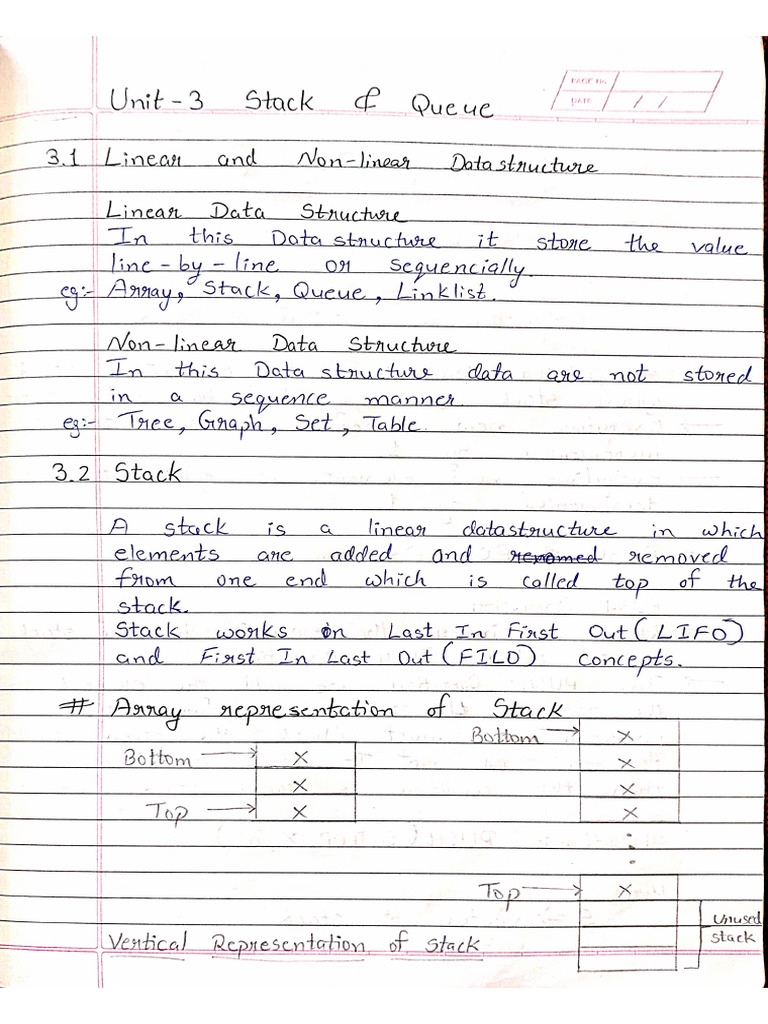 PAGE No.
DATE / /
Unit-3 Stack & Queue
3.1 Linear and Non-linear Datastructure
Linear Data Structure
In this Datastructure it store the value
line-by-line or sequencially.
eg:- Array, Stack, Queue, Linklist.
Non-linear Data Structure
In this Datastructure data are not stored
in a sequence manner.
eg:- Tree, Graph, Set, Table.
3.2 Stack
A stack is a linear datastructure in which
elements are added and renomed removed
from one end which is called top of the
stack.
Stack works on Last In First Out (LIFO)
and First In Last Out (FILO) concepts.
# Array representation of Stack
Bottom → X
X
Top → X
Bottom → X
X
X
X
Top → X
Unused
stack
Vertical Representation of Stack